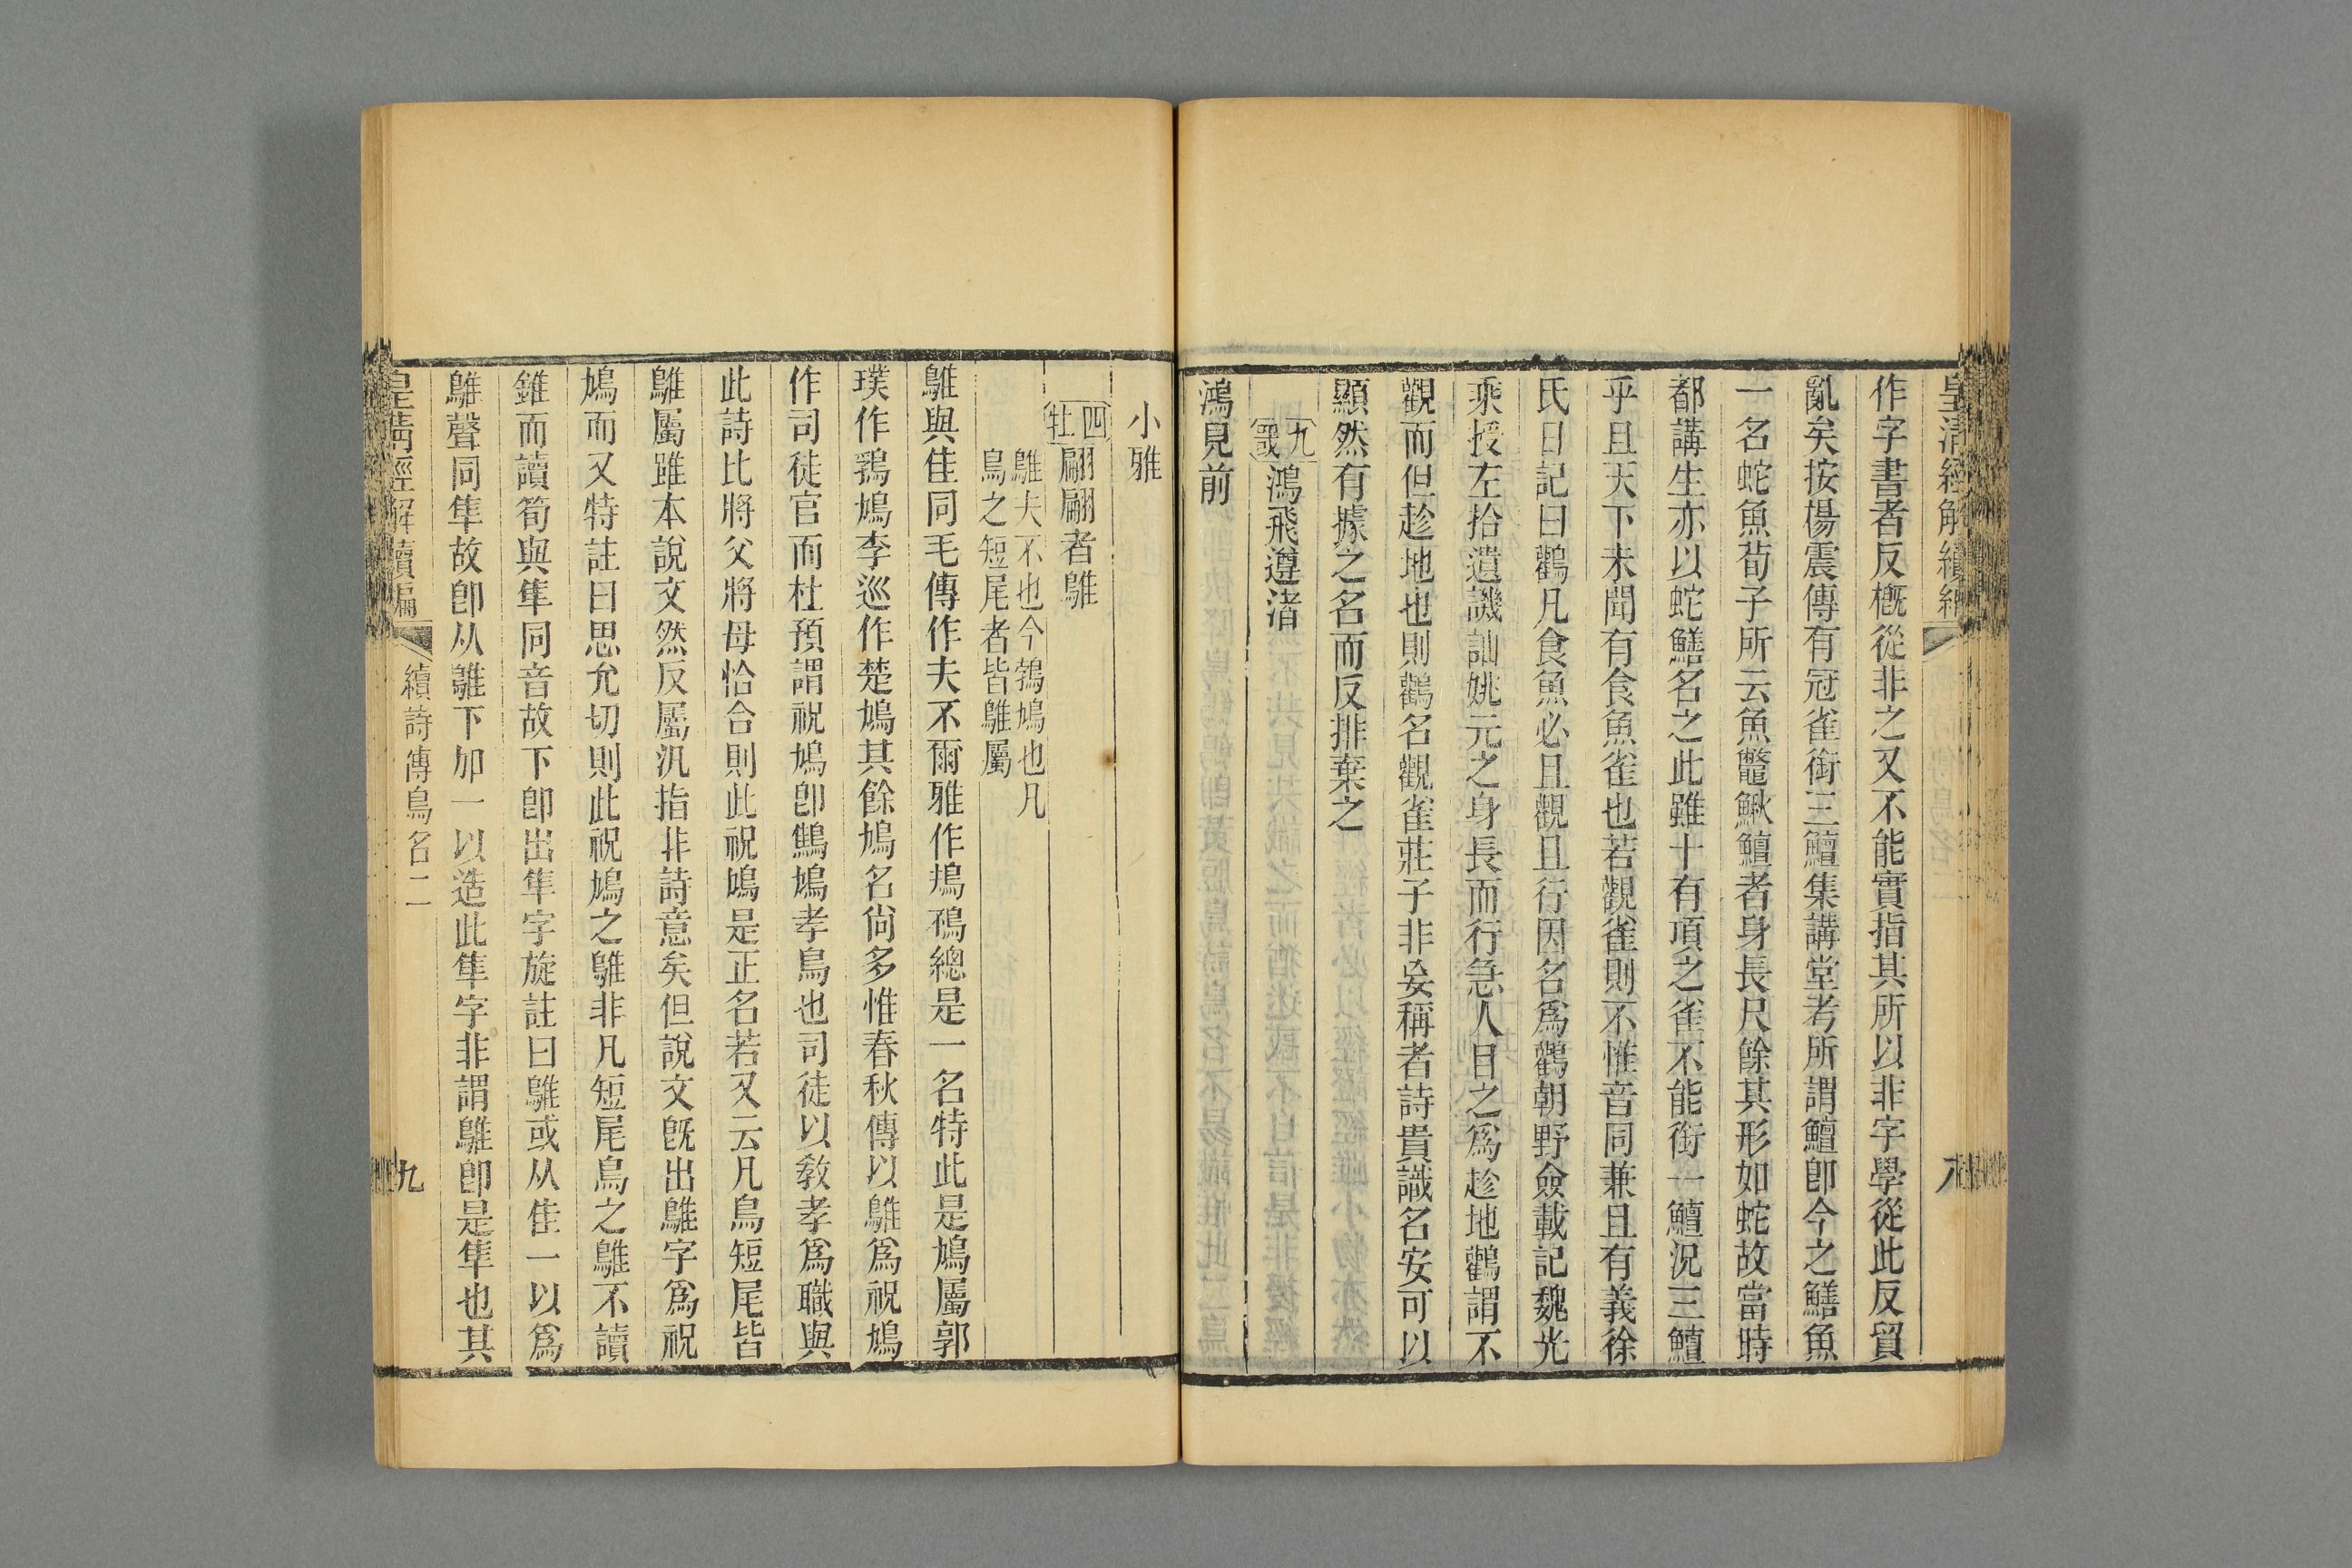 皇清經解續編
八
作字書者反槪從非之又不能實指其所以非字學從此反貿
亂矣按楊震傳有冠雀銜三鱣集講堂考所謂鱣卽今之鱔魚
一名蛇魚荀子所云魚鼈鰍鱣者身長尺餘其形如蛇故當時
都講生亦以蛇鱔名之此雖十有項之雀不能銜一鱣況三鱣
乎且天下未聞有食魚雀也若觀雀則不惟音同兼且有義徐
氏日記曰鸛凡食魚必且觀且行因名爲鸛朝野僉載記魏光
乘授左拾遺譏訕姚元之身長而行急人目之爲趁地鸛謂不
觀而但趁地也則鸛名觀雀莊子非妄稱者詩貴識名安可以
顯然有據之名而反排棄之
九罭 鴻飛遵渚
鴻見前
小雅
四牡 翩翩者鵻
鵻夫不也今鵓鳩也凡
鳥之短尾者皆鵻屬
鵻與隹同毛傳作夫不爾雅作鳺鴀總是一名特此是鳩屬郭
璞作鶏鳩李巡作楚鳩其餘鳩名尙多惟春秋傳以鵻爲祝鳩
作司徒官而杜預謂祝鳩卽鷦鳩孝鳥也司徒以敎孝爲職與
此詩比將父將母恰合則此祝鳩是正名若又云凡鳥短尾皆
鵻屬雖本說文然反屬汎指非詩意矣但說文旣出鵻字爲祝
鳩而又特註曰思允切則此祝鳩之鵻非凡短尾鳥之鵻不讀
錐而讀筍與隼同音故下卽出隼字旋註曰鵻或从隹一以爲
鵻聲同隼故卽从鵻下加一以造此隼字非謂鵻卽是隼也其
皇淸經解續編
續詩傳鳥名二
九